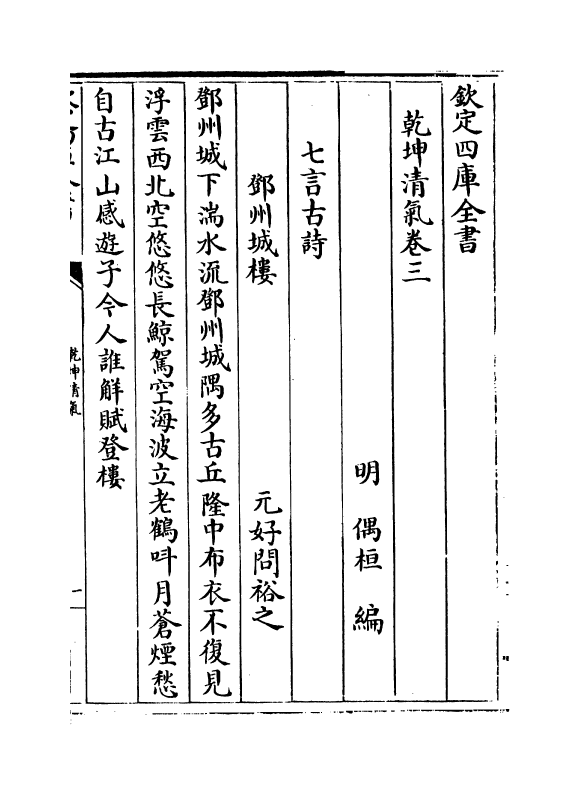 欽定四庫全書
乾坤清氣卷三
明　偶桓　編
七言古詩
鄧州城樓　元好問裕之
鄧州城下湍水流鄧州城隅多古丘隆中布衣不復見
浮雲西北空悠悠長鯨駕空海波立老鶴叫月蒼煙愁
自古江山感遊子今人誰解賦登樓
乾坤清氣
一